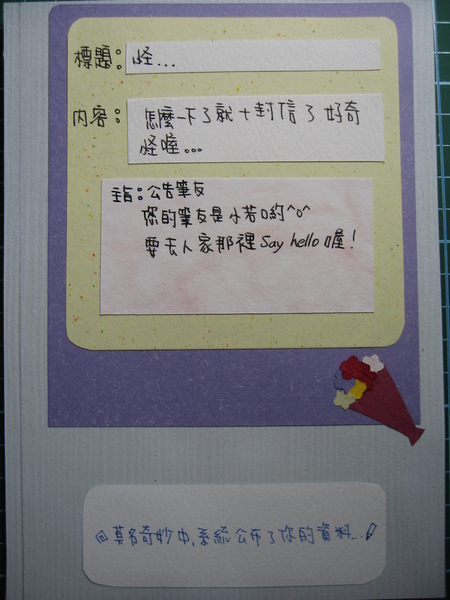 標題：怪...
內容：怎麼一下了就十封信了 好奇
怪喔。。。
主旨：公告筆友
你的筆友是小若0約^o^
要去人家那裡 Say hello 喔！
莫名奇妙中,系統公布了你的資料...